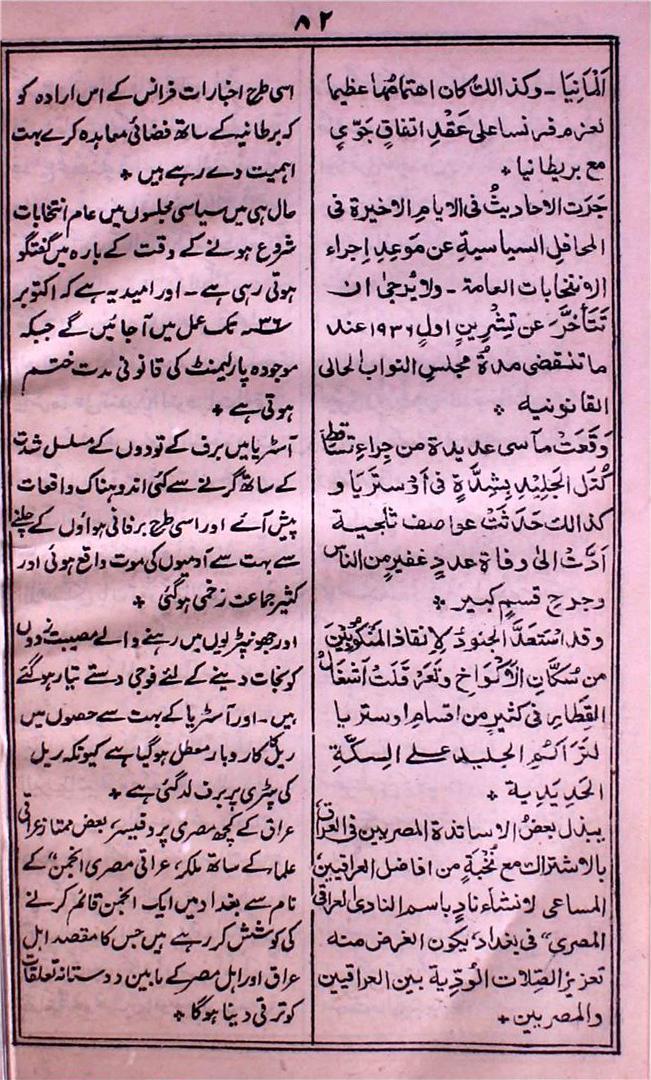 ٨٢
اَلْمانِيَا - وكذالك كان اهتمامُهما عظيما
لعزم فرنسا على عَقْدِ اتفاقٍ جَوّيٍ
مع بريطانيا *
جَرَت الاحاديثُ فى الايامِ الاخيرة فى
المحافل السياسيةِ عن مَوعدِ اِجراءِ
الانتخابات العامة - ولا يُرجىٰ ان
تَتَأخَّرَ عن تِشرِينِ اولٍ ١٩٣٦ عند
ما تنقضى مدةُ مجلسِ النواب الحالى
القانونيه *
وَقَعَتْ مآسى عديدة من جراءِ تساقط
كُتَلِ الجَلِيْدِ بِشِدَّةٍ فى اَوْستَرِيَا و
كذالك حَدَثَتْ عواصف ثلجية
اَدَّتْ الىٰ وفاة عددٍ غفيرٍ من الناس
وجرحِ قسمٍ كبير *
وقد استَعَدَّ الجنودُ لاِنقاذ المَنكُوبِيْنَ
من سُكَّانِ الاَكْوَاخِ وتَعَرْقَلَتْ اَشغالُ
القِطَارِ فى كثيرٍ من اقسامِ اوستريا
لتَرَاكُمِ الجليد على السِكَّةِ
الحَدِيْدِية *
يبذل بعضُ الاساتذة المصريين فى العراق
بالاشتراك مع نُخْبَةٍ من افاضل العراقيين
المساعى لانشاء نادٍ باسم النادى العراقى
المصرى" فى بغداد، يكون الغرض منه
تعزيز الصِّلات الوُدِّية بين العراقيين
والمصريين *
اسی طرح اخبارات فرانس کے اس ارادہ کو
کہ برطانیہ کے ساتھ فضائی معاہدہ کرے بہت
اہمیت دے رہے ہیں *
حال ہی میں سیاسی مجلسوں میں عام انتخابات
شروع ہونے کے وقت کے بارہ میں گفتگو
ہوتی رہی ہے - اور امید یہ ہے کہ اکتوبر
۳۶ء تک عمل میں آجائیں گے جبکہ
موجودہ پارلیمنٹ کی قانونی مدت ختم
ہوتی ہے *
آسٹریا میں برف کے تودوں کے مسلسل شدت
کے ساتھ گرنے سے کئی اندوہناک واقعات
پیش آئے اور اسی طرح برفانی ہواؤں کے چلنے
سے بہت سے آدمیوں کی موت واقع ہوئی اور
کثیر جماعت زخمی ہوگئی *
اور جھونپڑیوں میں رہنے والے مصیبت زدوں
کو نجات دینے کے لئے فوجی دستے تیار ہوگئے
ہیں - اور آسٹریا کے بہت سے حصوں میں
ریل کا کاروبار معطل ہوگیا ہے کیونکہ ریل
کی پٹڑی پر برف لد گئی ہے *
عراق کے کچھ مصری پروفیسر، بعض ممتاز عراقی
علماء کے ساتھ ملکر، عراقی مصری انجمن" کے
نام سے بغداد میں ایک انجمن قائم کرنے
کی کوشش کر رہے ہیں جس کا مقصد اہل
عراق اور اہل مصر کے مابین دوستانہ تعلقات
کو ترقی دینا ہوگا *